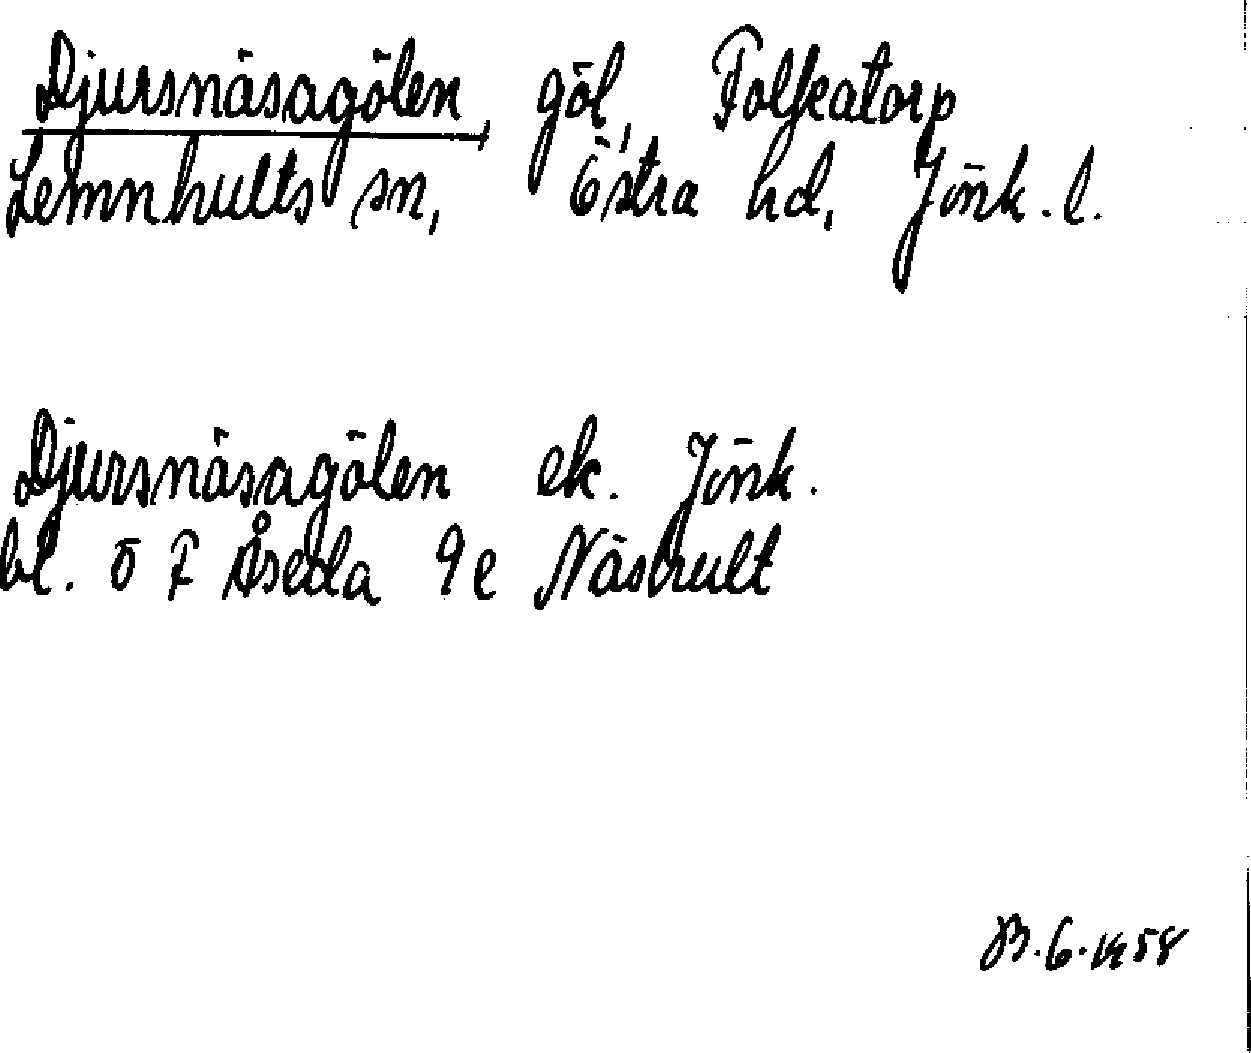 Djursnäsagölen, göl, Folkatorp
Lemnhults sn, Östra hd, Jönk. l.
Djursnäsagölen ek. Jönk.
bl. 5 F Åseda 9e Näshult
6. 1958